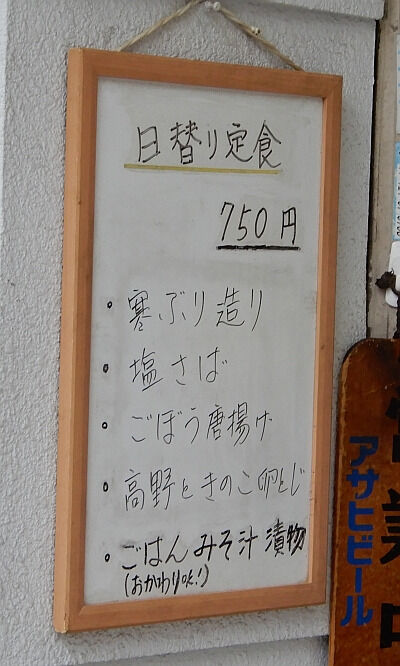 日替り定食
750円
寒ぶり造り
塩さば
ごぼう唐揚げ
高野ときのこ卵とじ
ごはん みそ汁 漬物
(おかわりOK!)
営業中
アサヒビール